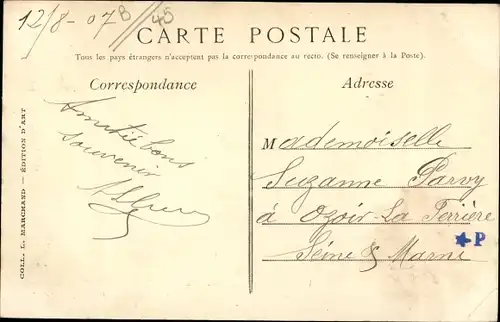 12/8-07
45
CARTE POSTALE
Tous les pays étrangers n'acceptent pas la correspondance au recto. (Se renseigner à la Poste).
Correspondance
Amitié bons
souvenir
Adresse
Mademoiselle
Suzanne Parvy
à Ozoir-La Ferrière
Seine & Marne
P
COLL. L. MARCHAND — ÉDITION D'ART